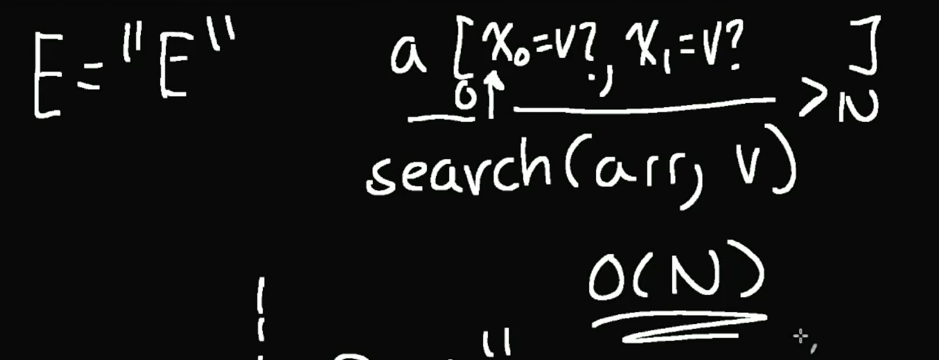 E="E"
a [x₀=v?, x₁=v? ]
0 N
search(arr, v)
O(N)